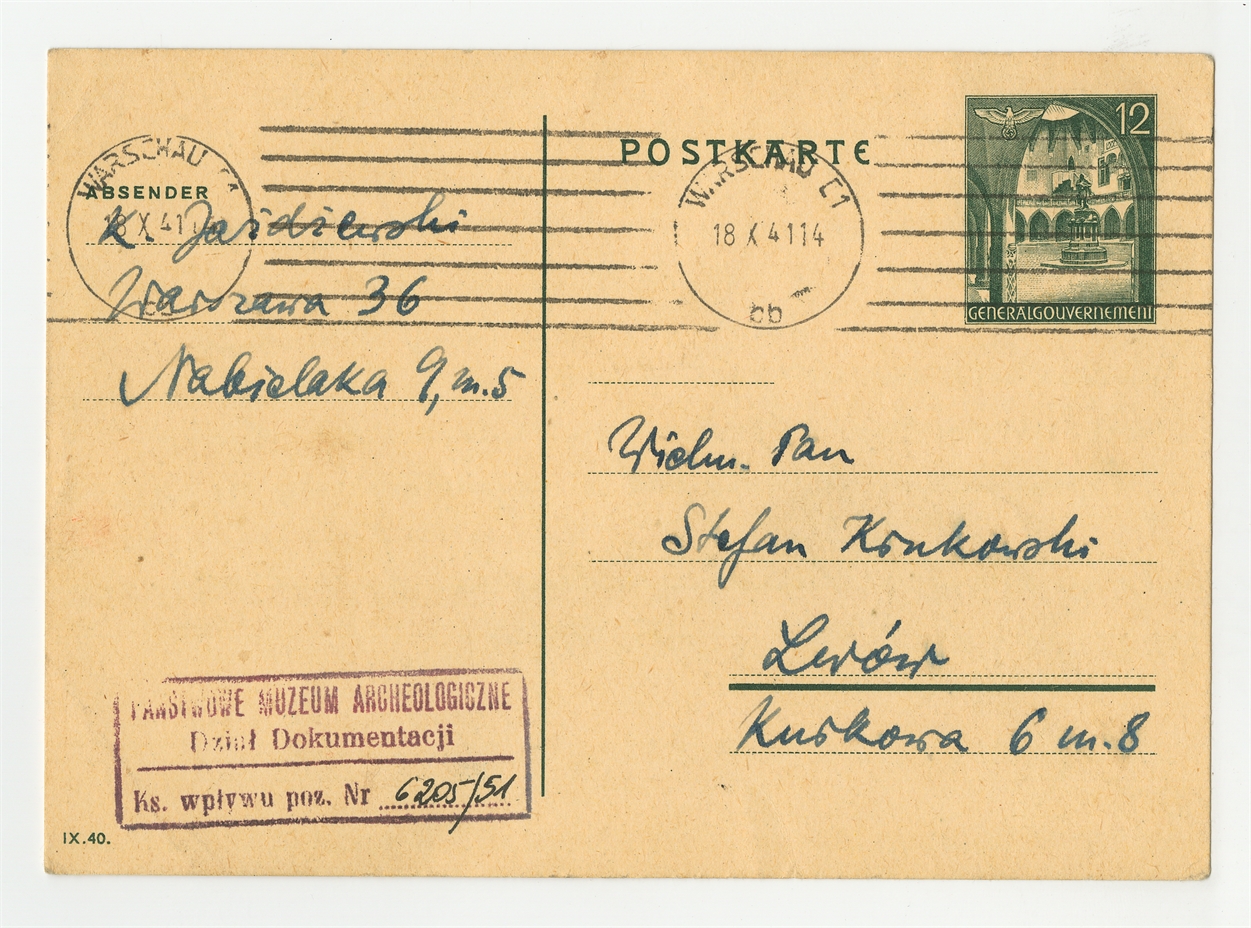 WARSCHAU C1
18 X 41 1
ABSENDER
K. Jażdżewski
Warszawa 36
Nabielaka 9, m. 5
POSTKARTE
WARSCHAU C1
18 X 41 14
bb
12
GENERALGOUVERNEMENT
Wielm. Pan
Stefan Krukowski
Lwów
Kurkowa 6 m. 8
PAŃSTWOWE MUZEUM ARCHEOLOGICZNE
Dział Dokumentacji
Ks. wpływu poz. Nr 6205/51
IX.40.